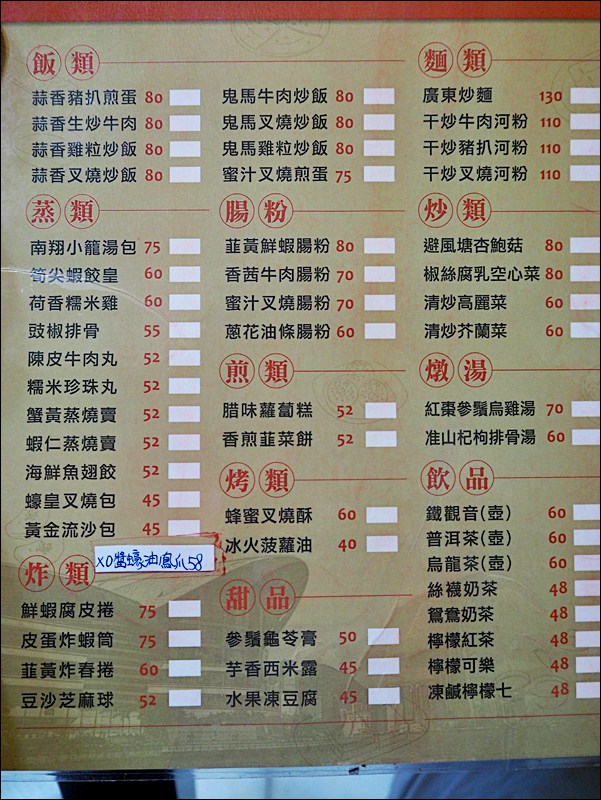 飯類
蒜香豬扒煎蛋 80
蒜香生炒牛肉 80
蒜香雞粒炒飯 80
蒜香叉燒炒飯 80
鬼馬牛肉炒飯 80
鬼馬叉燒炒飯 80
鬼馬雞粒炒飯 80
蜜汁叉燒煎蛋 75
麵類
廣東炒麵 130
干炒牛肉河粉 110
干炒豬扒河粉 110
干炒叉燒河粉 110
蒸類
南翔小籠湯包 75
筍尖蝦餃皇 60
荷香糯米雞 60
豉椒排骨 55
陳皮牛肉丸 52
糯米珍珠丸 52
蟹黃蒸燒賣 52
蝦仁蒸燒賣 52
海鮮魚翅餃 52
蠔皇叉燒包 45
黃金流沙包 45
XO醬蠔油鳳爪58
炸類
鮮蝦腐皮捲 75
皮蛋炸蝦筒 75
韮黃炸春捲 60
豆沙芝麻球 52
腸粉
韮黃鮮蝦腸粉 80
香茜牛肉腸粉 70
蜜汁叉燒腸粉 70
蔥花油條腸粉 60
煎類
腊味蘿蔔糕 52
香煎韮菜餅 52
烤類
蜂蜜叉燒酥 60
冰火菠蘿油 40
甜品
參鬚龜苓膏 50
芋香西米露 45
水果凍豆腐 45
炒類
避風塘杏鮑菇 80
椒絲腐乳空心菜 80
清炒高麗菜 60
清炒芥蘭菜 60
燉湯
紅棗參鬚烏雞湯 70
准山杞枸排骨湯 60
飲品
鐵觀音(壺) 60
普洱茶(壺) 60
烏龍茶(壺) 60
絲襪奶茶 48
鴛鴦奶茶 48
檸檬紅茶 48
檸檬可樂 48
凍鹹檸檬七 48